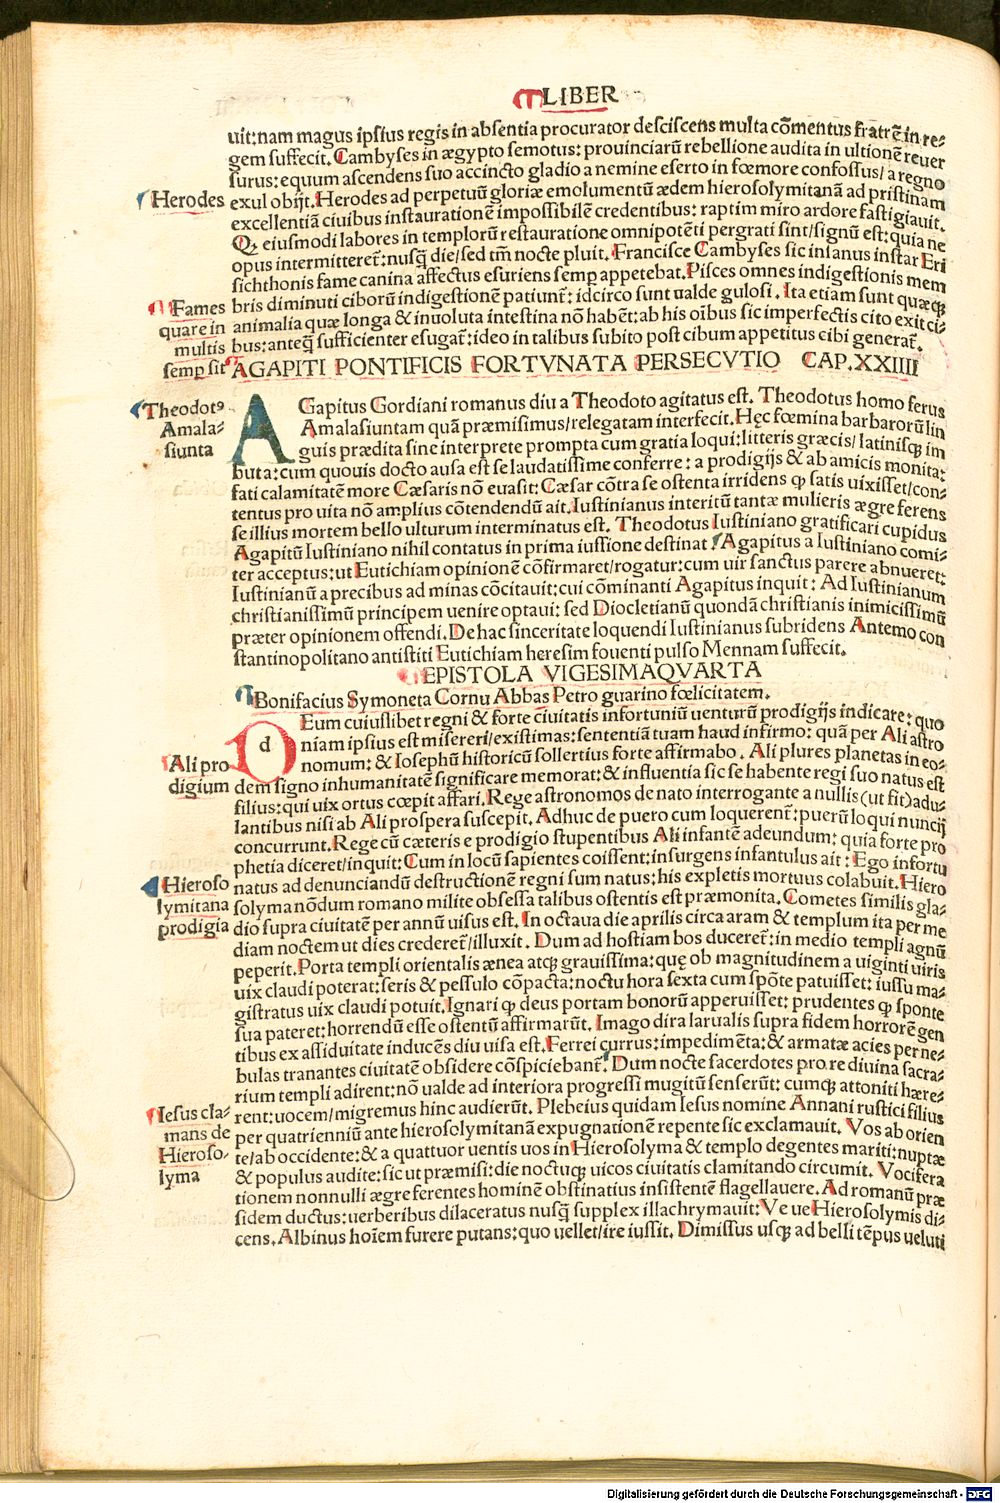 LIBER
uit:nam magus ipsius regis in absentia procurator desciscens multa cōmentus fratrē in re-
gem suffecit. Cambyses in ægypto semotus: prouinciarū rebellione audita in ultionē reuer
surus: equum ascendens suo accincto gladio a nemine eserto in fœmore confossus/a regno
Herodes
exul obijt. Herodes ad perpetuū gloriæ emolumentū ædem hierosolymitanā ad pristinam
excellentiā ciuibus instaurationē impossibilē credentibus: raptim miro ardore fastigiauit.
Q ꝫ eiusmodi labores in templorū restauratione omnipotēti pergrati sint/signū est: quia ne
opus intermitteret̄: nusq̄ die/sed tm̄ nocte pluit. Francisce Cambyses sic insanus instar Eri
sichthonis fame canina affectus esuriens semp appetebat. Pisces omnes indigestionis mem
Fames
quare in
multis
semp sit
bris diminuti ciborū indigestionē patiunt̄: idcirco sunt ualde gulosi. Ita etiam sunt quæcꝗ
animalia quæ longa & inuoluta intestina nō habēt: ab his oībus sic imperfectis cito exit ci-
bus: anteq̄ sufficienter esugat̄: ideo in talibus subito post cibum appetitus cibi generat̄.
AGAPITI PONTIFICIS FORTVNATA PERSECVTIO CAP. XXIIII
Theodotꝰ
Amala-
siunta
AGapitus Gordiani romanus diu a Theodoto agitatus est. Theodotus homo ferus
Amalasiuntam quā præmisimus/relegatam interfecit. Hęc fœmina barbarorū lin
guis prædita sine interprete prompta cum gratia loqui: litteris græcis/latinisꝗ im
buta: cum quouis docto ausa est se laudatissime conferre: a prodigijs & ab amicis monita:
fati calamitatē more Cæsaris nō euasit: Cæsar cōtra se ostenta irridens ꝙ satis uixisset/con-
tentus pro uita nō amplius cōtendendū ait. Iustinianus interitū tantæ mulieris ægre ferens
se illius mortem bello ulturum interminatus est. Theodotus Iustiniano gratificari cupidus
Agapitū Iustiniano nihil contatus in prima iussione destinat. Agapitus a Iustiniano comi-
ter acceptus: ut Eutichiam opinionē cōfirmaret/rogatur: cum uir sanctus parere abnueret:
Iustinianū a precibus ad minas cōcitauit: cui cōminanti Agapitus inquit: Ad Iustinianum
christianissimū principem uenire optaui: sed Diocletianū quondā christianis inimicissimū
præter opinionem offendi. De hac sinceritate loquendi Iustinianus subridens Antemo con
stantinopolitano antistiti Eutichiam heresim fouenti pulso Mennam suffecit.
EPISTOLA VIGESIMAQVARTA
Bonifacius Symoneta Cornu Abbas Petro guarino fœlicitatem.
d
Eum cuiuslibet regni & forte ciuitatis infortuniū uenturū prodigijs indicare: quo
niam ipsius est misereri/existimas: sententiā tuam haud infirmo: quā per Ali astro
Ali pro
digium
nomum: & Iosephū historicū sollertius forte affirmabo. Ali plures planetas in eo-
dem signo inhumanitatē significare memorat: & influentia sic se habente regi suo natus est
filius: qui uix ortus cœpit affari. Rege astronomos de nato interrogante a nullis (ut fit) adu-
lantibus nisi ab Ali prospera suscepit. Adhuc de puero cum loquerent̄: puerū loqui nuncij
concurrunt. Rege cū cæteris e prodigio stupentibus Ali infantē adeundum: quia forte pro
phetia diceret/inquit: Cum in locū sapientes coissent: insurgens infantulus ait: Ego infortu
Hieroso
lymitana
prodigia
natus ad denunciandū destructionē regni sum natus: his expletis mortuus colabuit. Hiero
solyma nōdum romano milite obsessa talibus ostentis est præmonita. Cometes similis gla-
dio supra ciuitatē per annū uisus est. In octaua die aprilis circa aram & templum ita per me
diam noctem ut dies crederet̄/illuxit. Dum ad hostiam bos duceret̄: in medio templi agnū
peperit. Porta templi orientalis ænea atqꝫ grauissima: quę ob magnitudinem a uiginti uiris
uix claudi poterat: seris & pessulo cōpacta: noctu hora sexta cum spōte patuisset: iussu ma-
gistratus uix claudi potuit. Ignari ꝙ deus portam bonorū apperuisset: prudentes ꝙ sponte
sua pateret: horrendū esse ostentū affirmarūt. Imago dira larualis supra fidem horrorē gen
tibus ex assiduitate inducēs diu uisa est. Ferrei currus: impedimēta: & armatæ acies per ne-
bulas tranantes ciuitatē obsidere cōspiciebant̄. Dum nocte sacerdotes pro re diuina sacra-
rium templi adirent: nō ualde ad interiora progressi mugitū senserūt: cumqꝫ attoniti hære-
Iesus cla-
mans de
Hieroso-
lyma
rent: uocem/migremus hinc audierūt. Plebeius quidam Iesus nomine Annani rustici filius
per quatrienniū ante hierosolymitanā expugnationē repente sic exclamauit. Vos ab orien
te/ab occidente: & a quattuor uentis uos in Hierosolyma & templo degentes mariti: nuptæ
& populus audite: sic ut præmisi: die noctuqꝫ uicos ciuitatis clamitando circumit. Vocifera
tionem nonnulli ægre ferentes hominē obstinatius insistentē flagellauere. Ad romanū præ
sidem ductus: uerberibus dilaceratus nusq̄ supplex illachrymauit: Ve ue Hierosolymis di-
cens. Albinus hoīem furere putans: quo uellet/ire iussit. Dimissus usqꝫ ad belli tēpus ueluti
Digitalisierung gefördert durch die Deutsche Forschungsgemeinschaft - DFG